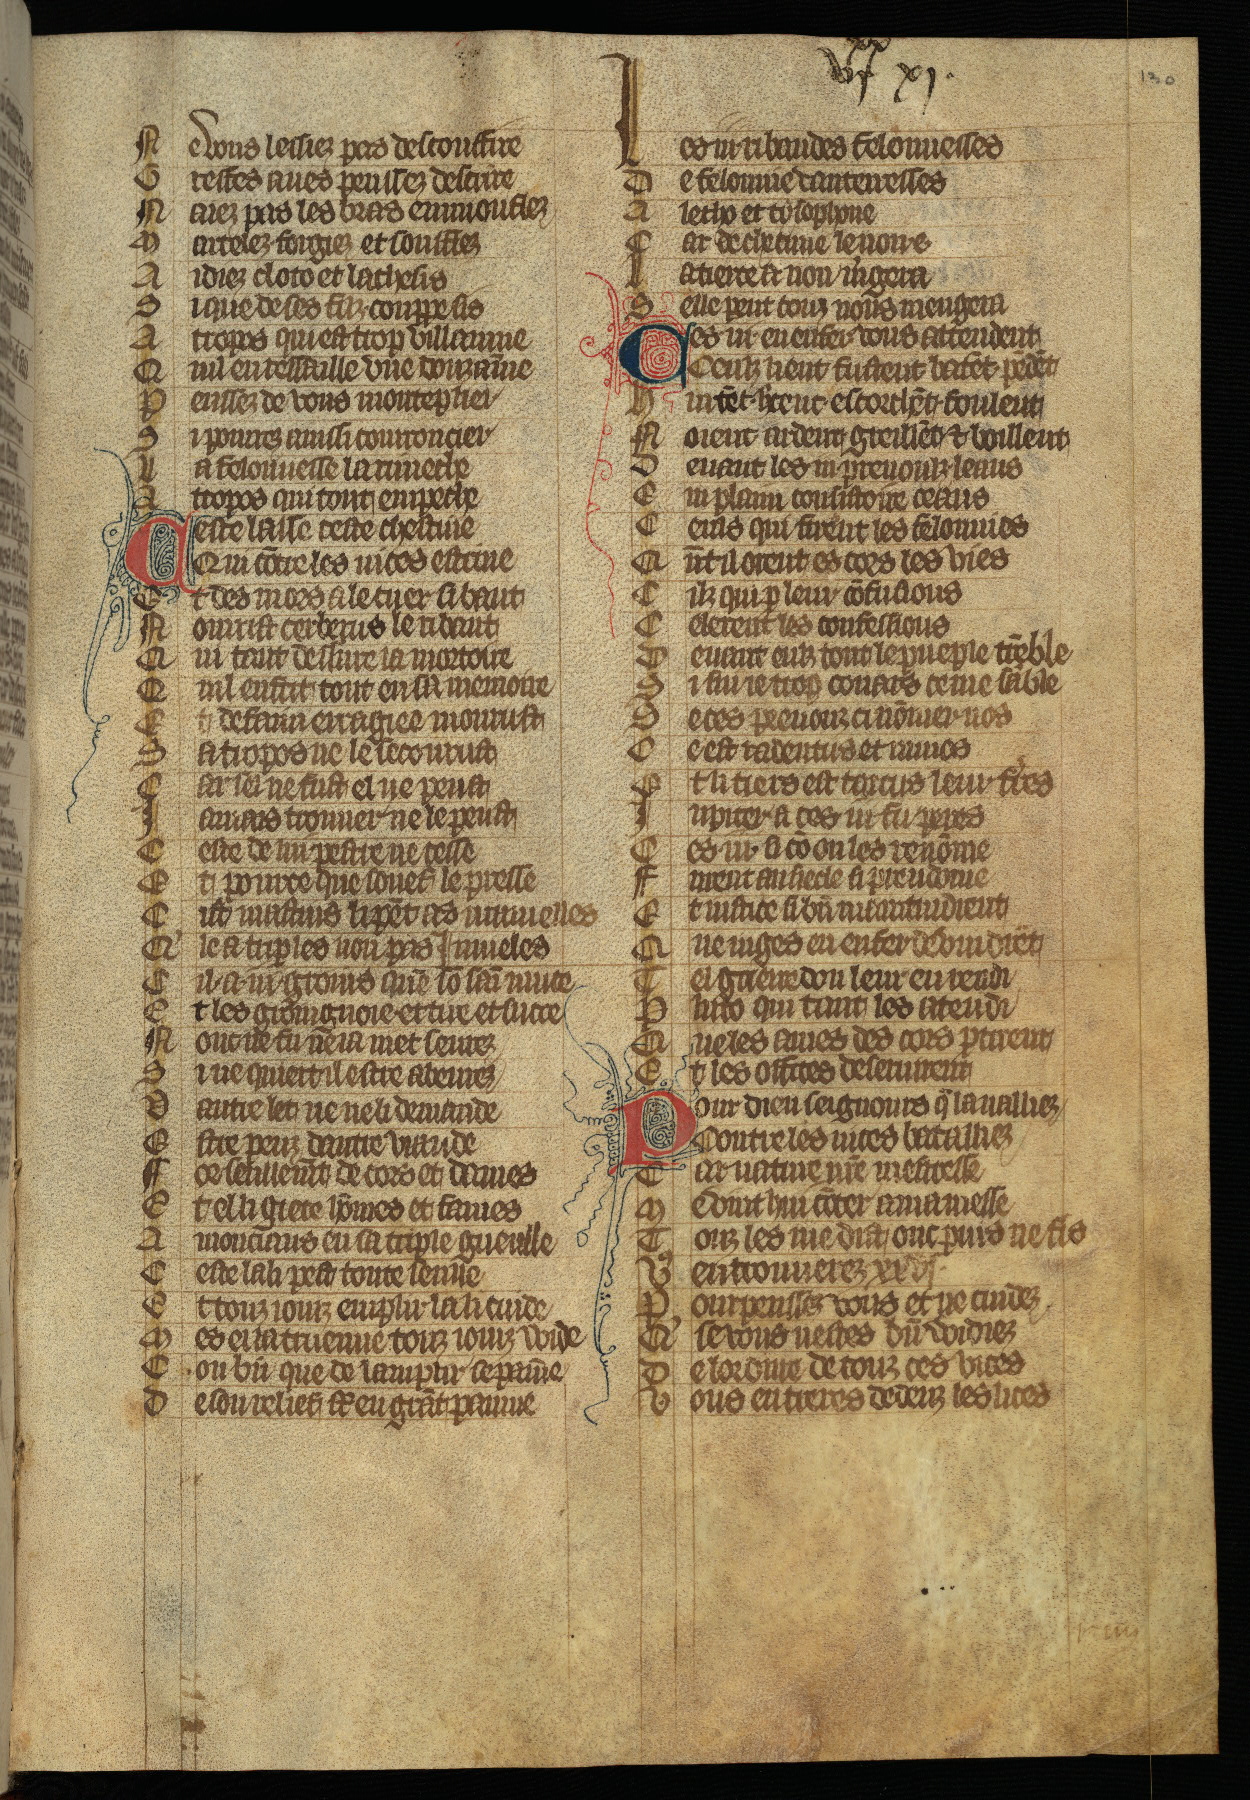 vixx xj.
130
N e vous lessiez pas desconfire
G refes aues penssez descrire
N aiez pas les bras enmouflez
M artelez forgiez et soufflez
A idiez cloto et lachesis
S i que de ses filz couppe sis
A tropos qui est trop villainne
Q uil en ressaille vne douzainne
P enssez de vous monteplier
S i pourrez ainssi conroncier
L a felonnesse la rimeche
A tropos qui tout empeche
C este lasse ceste chestiue
Q ui cōtre les uices estriue
E t des mors a le cuer si baut
N ourrist cerberus le ribaut
Q ui tant desirre la mortoire
Q uil en frit tout en sa memoire
E t de fain enragiee mourust
S atropos ne le secourust
C ar sel ne fust el ne peust
J amais trouuer ne le peust
C este de lui pestre ne cesse
E t pource que souef le presse
C ist mastins li pēt as mamelles
Q le a triples non pas Jumeles
C il a iii groins quē sō sain muce
E t les groingnoie et tire et succe
N onc ne fu nēia met seurez
S i ne quiert il estre abeurez
D autre let ne neli demande
E stre peuz dautre viande
F ors seullemt de cors et dames
E t el li giete hōmes et fames
A monciaus en sa triple gueulle
C este la li pest toute seulle
E t touz iours emplir la li cuide
M es el la trueuue touz iours vuide
C ou bn que de lamplir se paine
D e son relief sōt en grāt painne
L es iii ribaudes felonnesses
D e felonnie vanterresses
A letho et tysophone
C ar de chetiue lenoire
L a tierce a non megera
S elle peut touz nous mengera
C es iii en enfer vous attendent
C eulz lient fustent batēt pēdēt
H urtēt hercent escorchēt foulent
N oient ardent greillēt & boillent
D euant les iii preuoulz leaus
E n plain consistoire ceaus
C eaus qui firent les felonnies
Q nt il orent es cors les vies
C ilz qui p leur cōfusions
C elerent les confessions
D euant eulz tout le pueple trēble
S i sui ie trop couars ce me sāble
S e ces preuoz ci nōmer nos
C e est radentus et minos
E t li tiers est tartus leur frēs
J upiter a ces iii fu peres
C es iii si cō on les renōme
F urent au siecle si preudome
E t iustice si bn maintindient
Q ue iuges en enfer deuindiēt
T el guerredon leur en rendi
P luto qui tant les atendi
Q ue les ames des cors ptirent
E t les offices deseruirent
P our dieu seignours q̄ la nalliez
C ontre les uices batailliez
C ar nature nrē mestresse
M e vint hui cōter a ma messe
T ouz les me dist onc puis ne fis
V en trouuerez xxvj.
P our penssez vous et ne cuidez
Q se vous nestes bn vuidiez
D e lordure de touz ces vices
V ous entrerez dedenz les lices